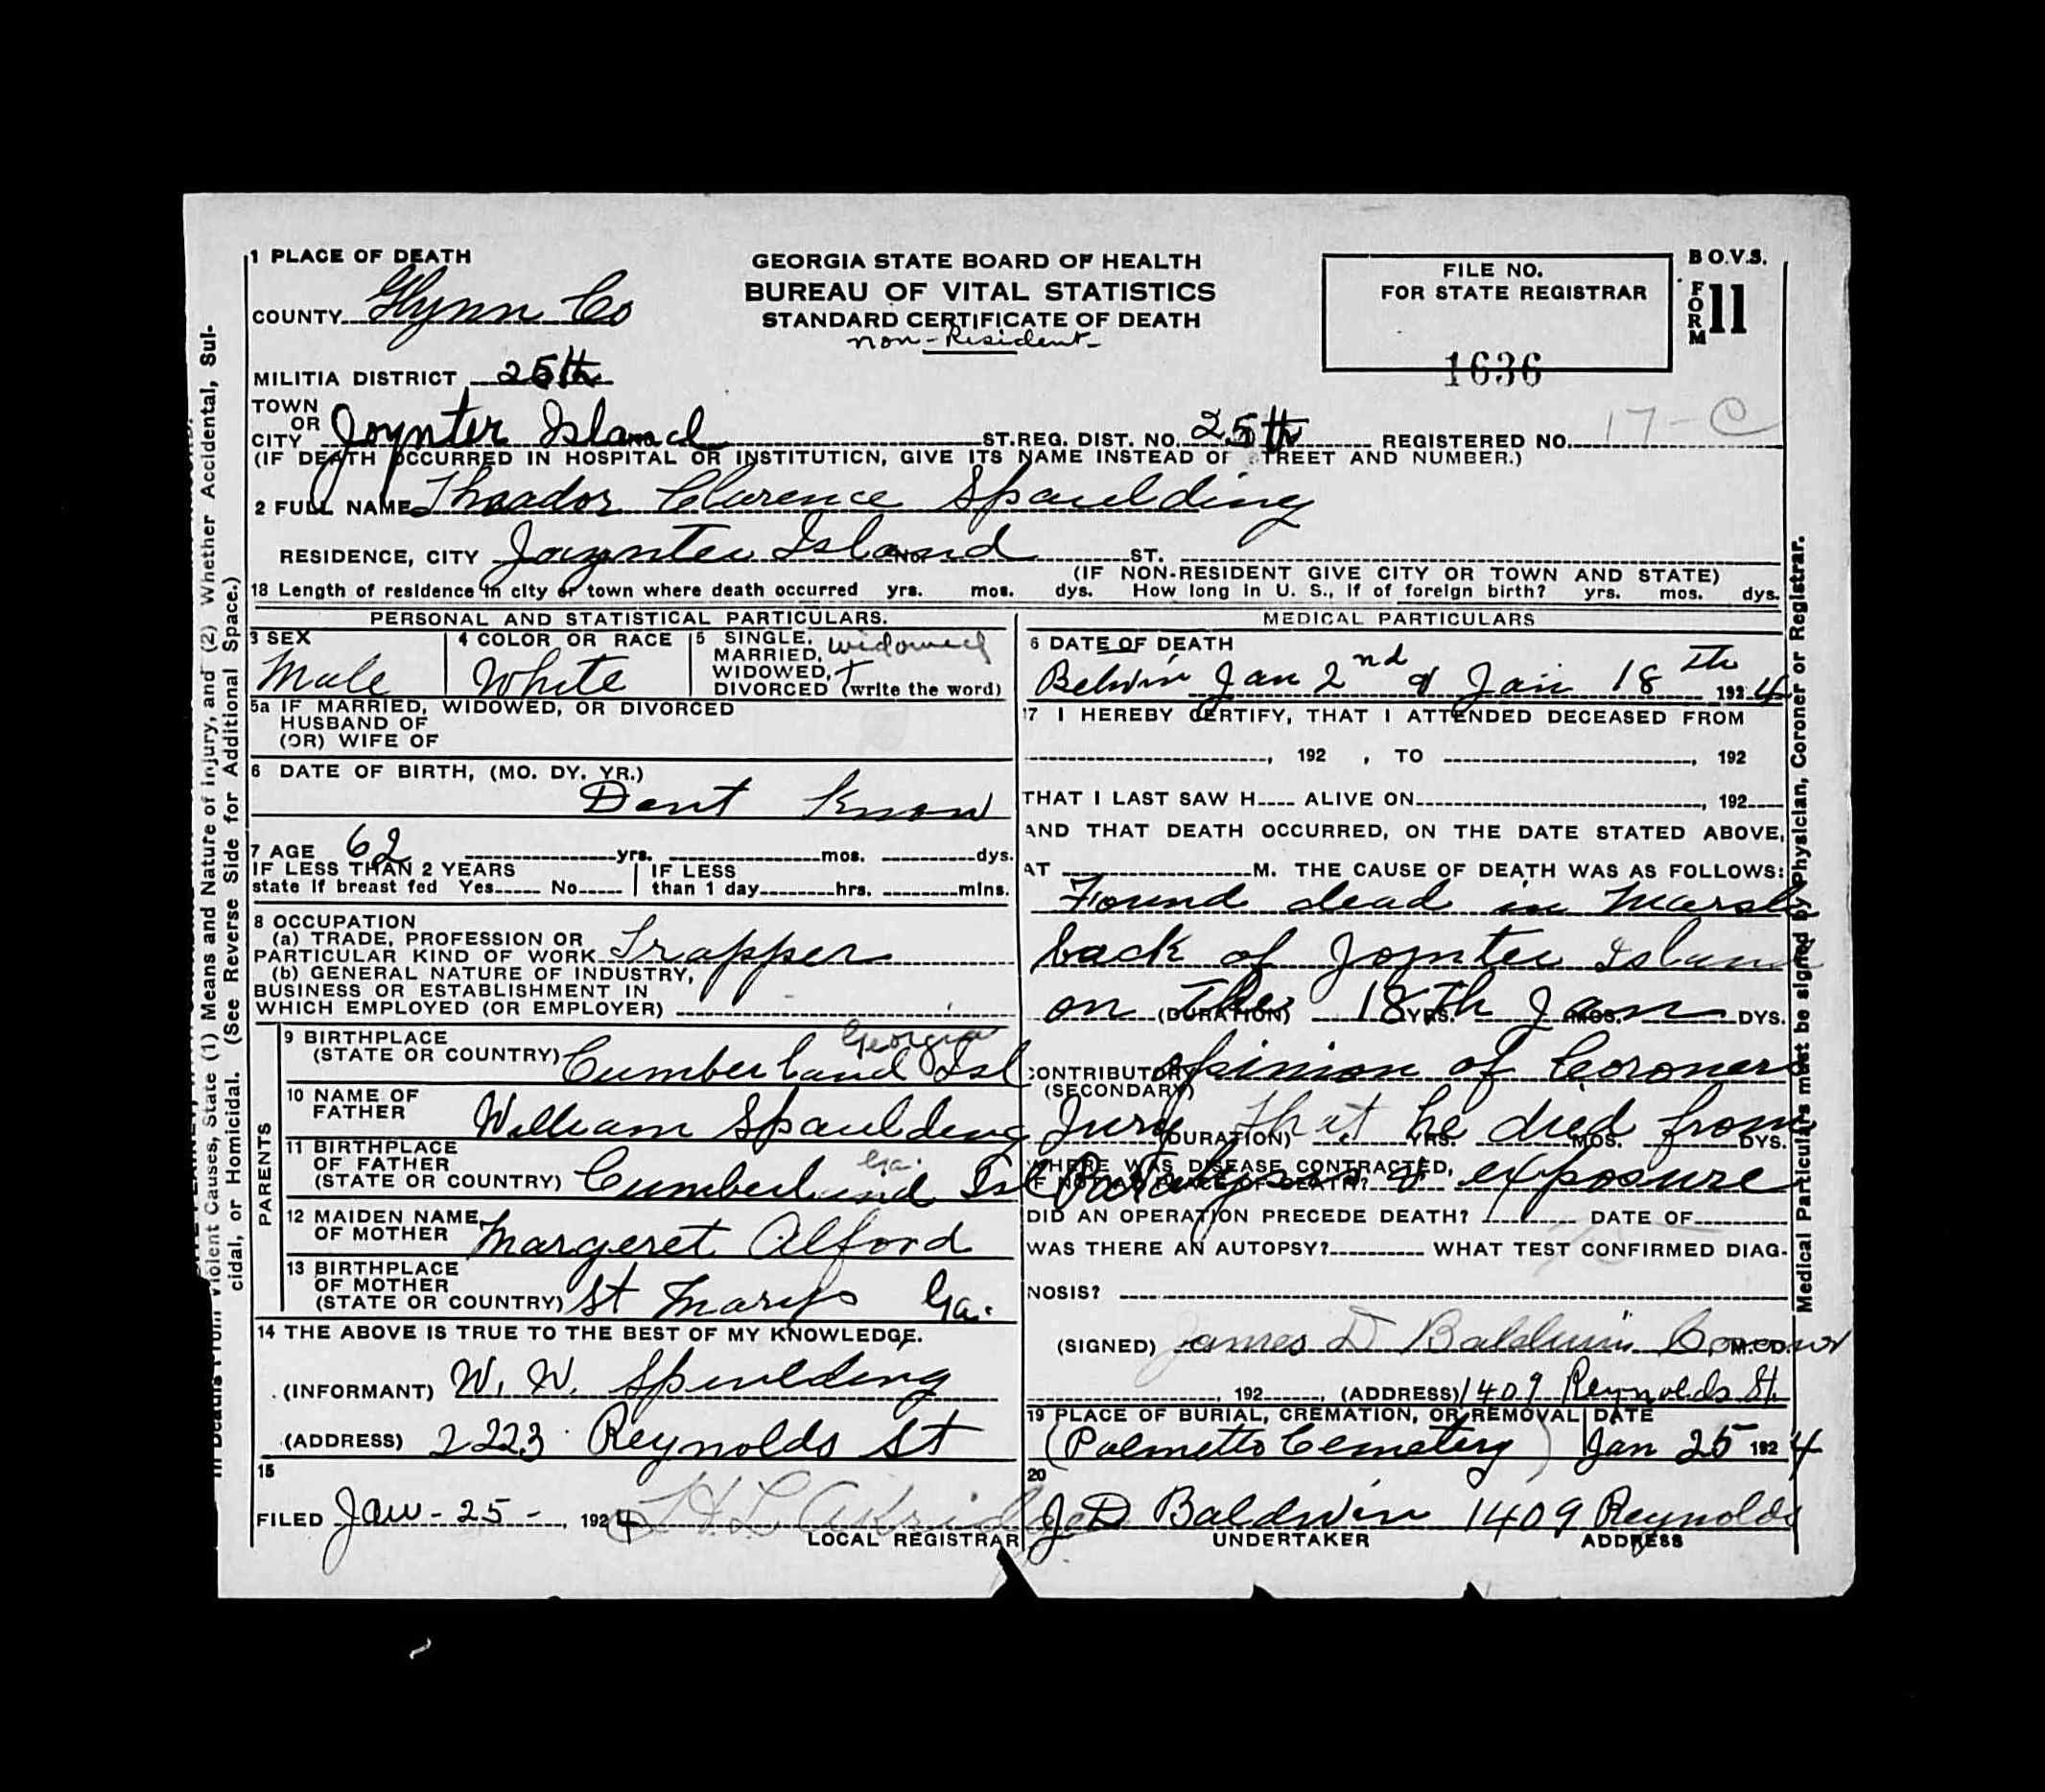 1 PLACE OF DEATH
COUNTY Glynn Co
GEORGIA STATE BOARD OF HEALTH
BUREAU OF VITAL STATISTICS
STANDARD CERTIFICATE OF DEATH
non-Resident-
FILE NO.
FOR STATE REGISTRAR
1636
B.O.V.S.
FORM 11
MILITIA DISTRICT 25th
TOWN OR CITY Joynter Island ST. REG. DIST. NO. 25th REGISTERED NO. 17-C
(IF DEATH OCCURRED IN HOSPITAL OR INSTITUTION, GIVE ITS NAME INSTEAD OF STREET AND NUMBER.)
2 FULL NAME Theador Clarence Spaulding
RESIDENCE, CITY Joynter Island No. ST.
(IF NON-RESIDENT GIVE CITY OR TOWN AND STATE)
18 Length of residence in city or town where death occurred yrs. mos. dys. How long in U. S., if of foreign birth? yrs. mos. dys.
PERSONAL AND STATISTICAL PARTICULARS.
3 SEX
Male
4 COLOR OR RACE
White
5 SINGLE, MARRIED, WIDOWED, DIVORCED (write the word)
widowed
5a IF MARRIED, WIDOWED, OR DIVORCED
HUSBAND OF
(OR) WIFE OF
6 DATE OF BIRTH, (MO. DY. YR.)
Dont Know
7 AGE 62 yrs. mos. dys.
IF LESS THAN 2 YEARS
state if breast fed Yes No
IF LESS
than 1 day hrs. mins.
8 OCCUPATION
(a) TRADE, PROFESSION OR
PARTICULAR KIND OF WORK Trapper
(b) GENERAL NATURE OF INDUSTRY,
BUSINESS OR ESTABLISHMENT IN
WHICH EMPLOYED (OR EMPLOYER)
PARENTS
9 BIRTHPLACE
(STATE OR COUNTRY) Cumberland Isl Georgia
10 NAME OF
FATHER William Spaulding
11 BIRTHPLACE
OF FATHER
(STATE OR COUNTRY) Cumberland Isl Ga.
12 MAIDEN NAME
OF MOTHER Margeret Alford
13 BIRTHPLACE
OF MOTHER
(STATE OR COUNTRY) St Marys Ga.
14 THE ABOVE IS TRUE TO THE BEST OF MY KNOWLEDGE.
(INFORMANT) W. W. Spaulding
(ADDRESS) 2223 Reynolds St
15
FILED Jan-25-, 1924 H L Akridge
LOCAL REGISTRAR
MEDICAL PARTICULARS
6 DATE OF DEATH
Betwin Jan 2nd & Jan 18th 1924
17 I HEREBY CERTIFY, THAT I ATTENDED DECEASED FROM
, 192 , TO , 192
THAT I LAST SAW H ALIVE ON , 192
AND THAT DEATH OCCURRED, ON THE DATE STATED ABOVE,
AT M. THE CAUSE OF DEATH WAS AS FOLLOWS:
Found dead in Marsh
back of Joynter Island
on The 18Th Jan
(DURATION) YRS. MOS. DYS.
CONTRIBUTORY
(SECONDARY)
opinion of Coroners
Jury That he died from
(DURATION) YRS. MOS. DYS.
WHERE WAS DISEASE CONTRACTED,
IF NOT AT PLACE OF DEATH?
Paralysis & exposure
DID AN OPERATION PRECEDE DEATH? DATE OF
WAS THERE AN AUTOPSY? WHAT TEST CONFIRMED DIAG-
NOSIS?
(SIGNED) James D Baldwin Coroner M.D.
, 192 , (ADDRESS) 1409 Reynolds St.
19 PLACE OF BURIAL, CREMATION, OR REMOVAL
(Palmetto Cemetery)
DATE
Jan 25 1924
20
J D Baldwin 1409 Reynolds
UNDERTAKER ADDRESS
Violent Causes, State (1) Means and Nature of Injury, and (2) Whether Accidental, Sui-
cidal, or Homicidal. (See Reverse Side for Additional Space.)
Medical Particulars must be signed by Physician, Coroner or Registrar.